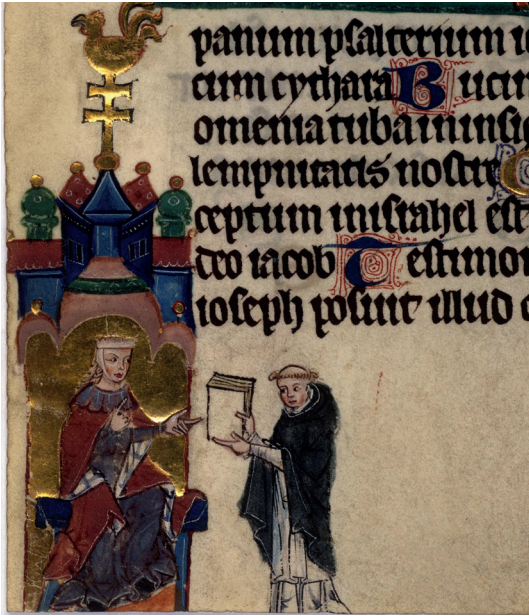 panum psalterium io
cum cythara Bucin
omenia tuba in insig
lempnitatis nostre
ceptum in israhel est
deo iacob Testimon
ioseph posuit illud c